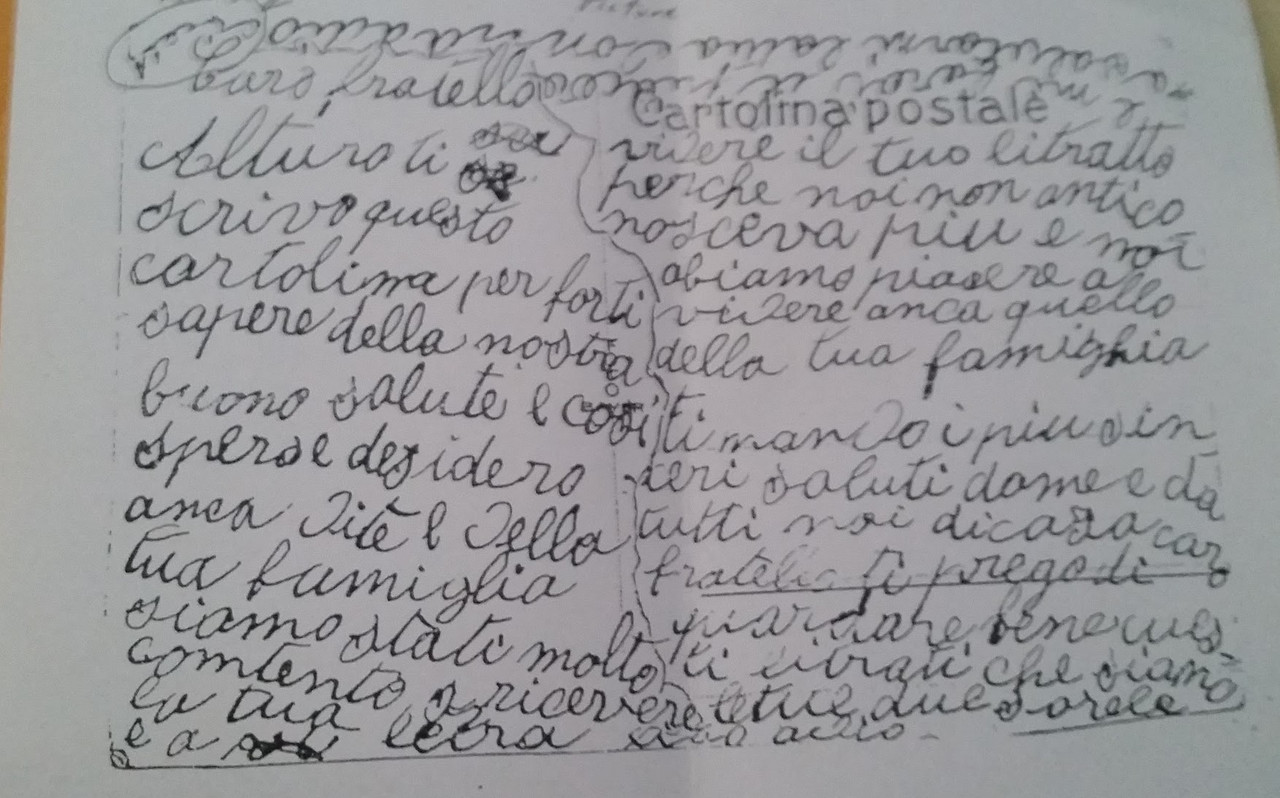 Picture
salutarvi con
caro fratello
Alturo ti
scrivo questo
cartolina per forti
sapere della nostra
buono salute e cosi
spero e desidero
anca di te e della
tua famiglia
siamo stati molto
contento a ricevere
la tua
e a letra
Cartolina postale
videre il tuo litratto
perche noi non antico
nosceva piu e noi
abiamo piasere a
videre anca quello
della tua famighia
ti mando i piu sin
ceri saluti dame e da
tutti noi dicasa car
fratello ti prego di
guardare bene ques
ti litrati che siamo
le tue due sorele
adio